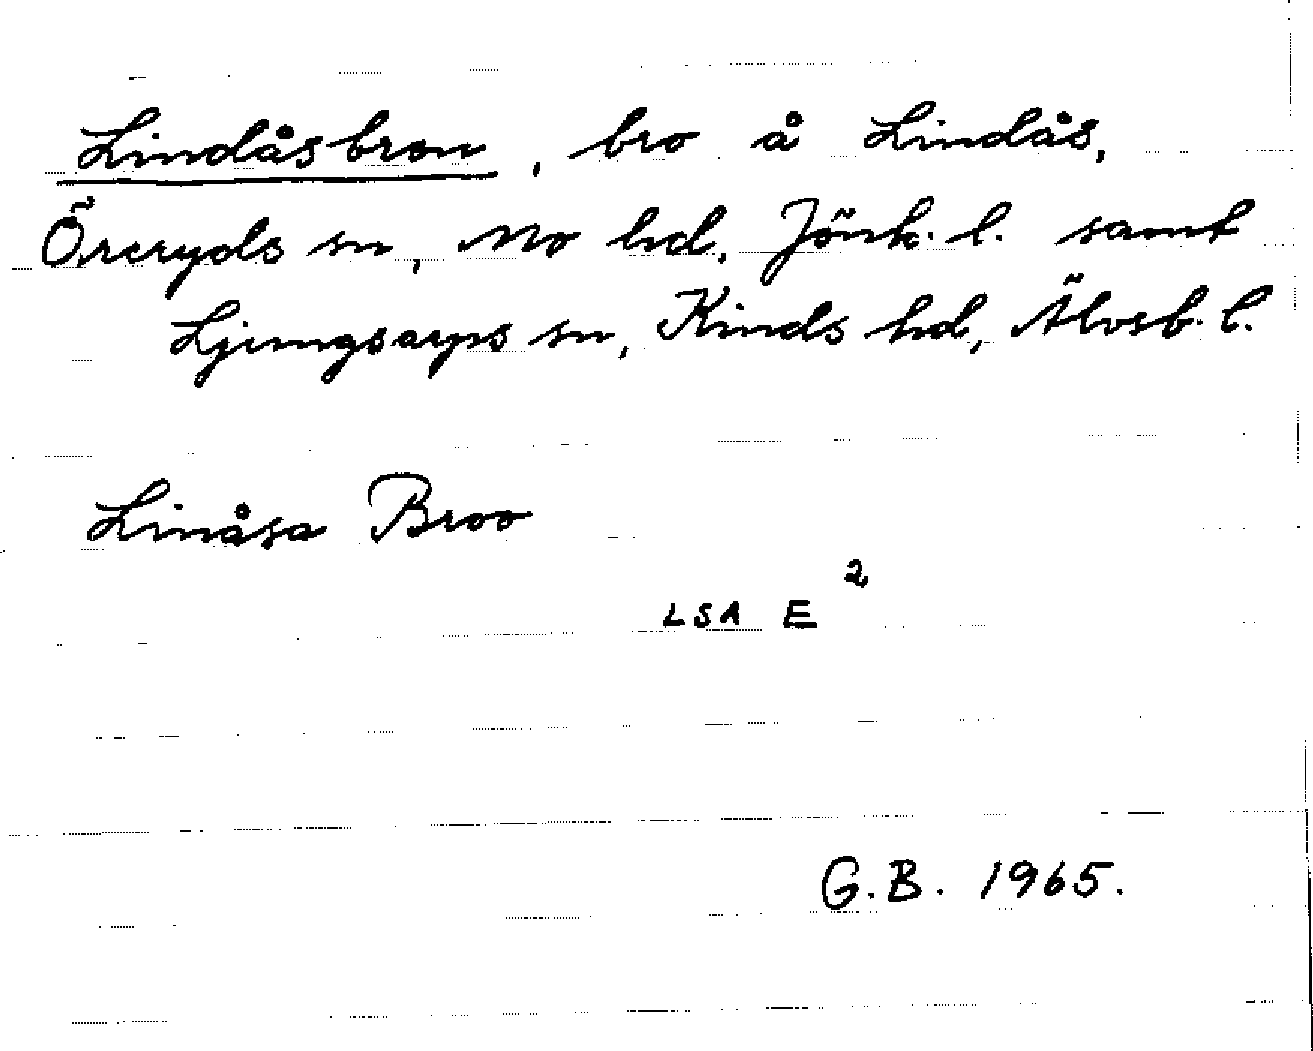 Lindåsbron, bro å Lindås,
Öreryds sn, Mo hd, Jönk. l. samt
Ljungsarps sn, Kinds hd, Älvsb. l.
Linåsa Broo
LSA E 2
G.B. 1965.